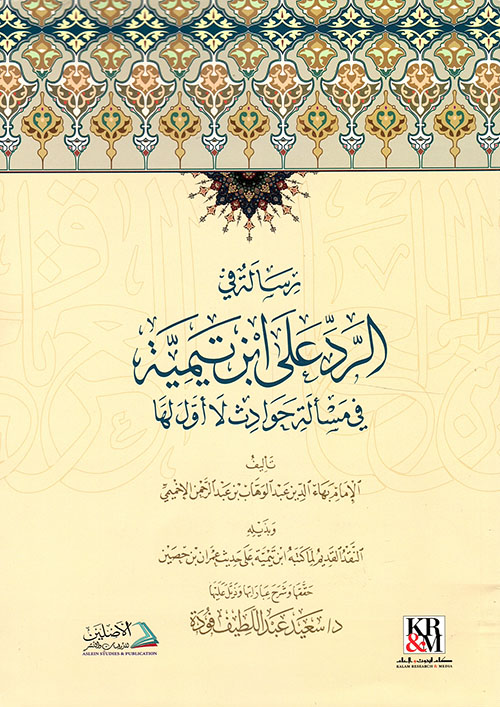 رسالة في
الرد على ابن تيمية
في مسألة حوادث لا أول لها
تأليف
الإمام بهاء الدين عبد الوهاب بن عبد الرحمن الإخميمي
وبذيله
النقد القديم لما كتبه ابن تيمية على حديث عمران بن حصين
حققها وشرح عباراتها وذيل عليها
د/ سعيد عبد اللطيف فودة
الأصلين
للدراسات والنشر
ASLEIN STUDIES & PUBLICATION
KR
&M
كلام للبحوث والإعلام
KALAM RESEARCH & MEDIA